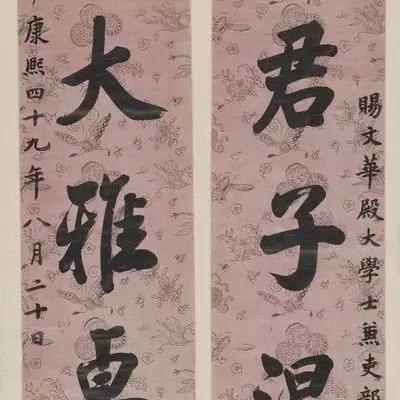 賜文華殿大學士兼吏部
君子温
大雅卓
康熙四十九年八月二十日